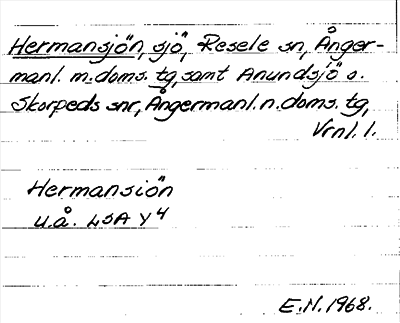 Hermansjön, sjö, Resele sn, Ånger-
manl. m. doms. tg, samt Anundsjö o.
Skorpeds snr, Ångermanl. n. doms. tg,
Vrnl. l.
Hermansiön
u.å. LSA Y4
E.N. 1968.